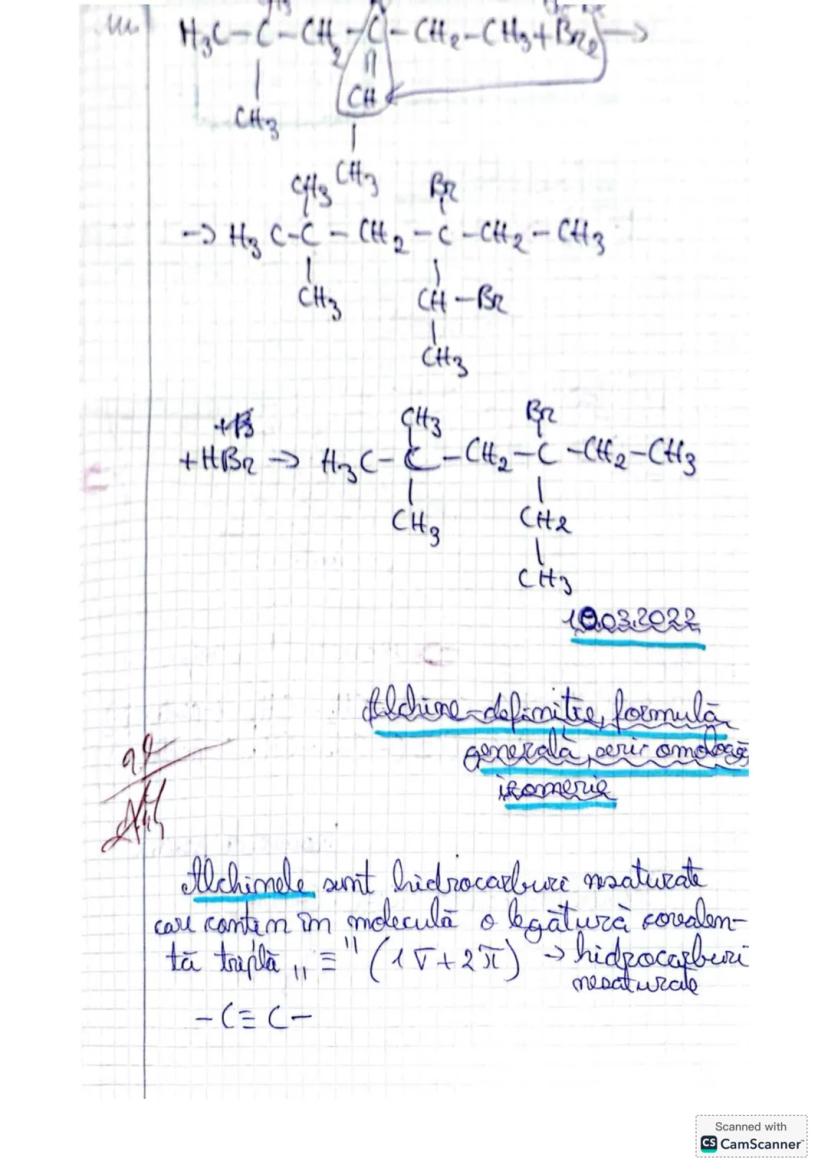 H₃C-C-CH₂-C-CH₂-CH₃+Br₂→
||
CH
CH₃
CH₃
CH₃ Br
→ H₃C-C-CH₂-C-CH₂-CH₃
CH₃ CH-Br
CH₃
+B CH₃ Br
+HBr → H₃C-C-CH₂-C-CH₂-CH₃
CH₃ CH2
CH₃
10.03.2022
Alchine-definitie, formulă
generală, serie omoloagă
izomerie
Alchinele sunt hidrocarburi nesaturate
care contin în moleculă o legătură covalen-
tă triplă „≡" (1σ+2π) → hidrocarburi
nesaturate
-C≡C-
Scanned with
CS CamScanner